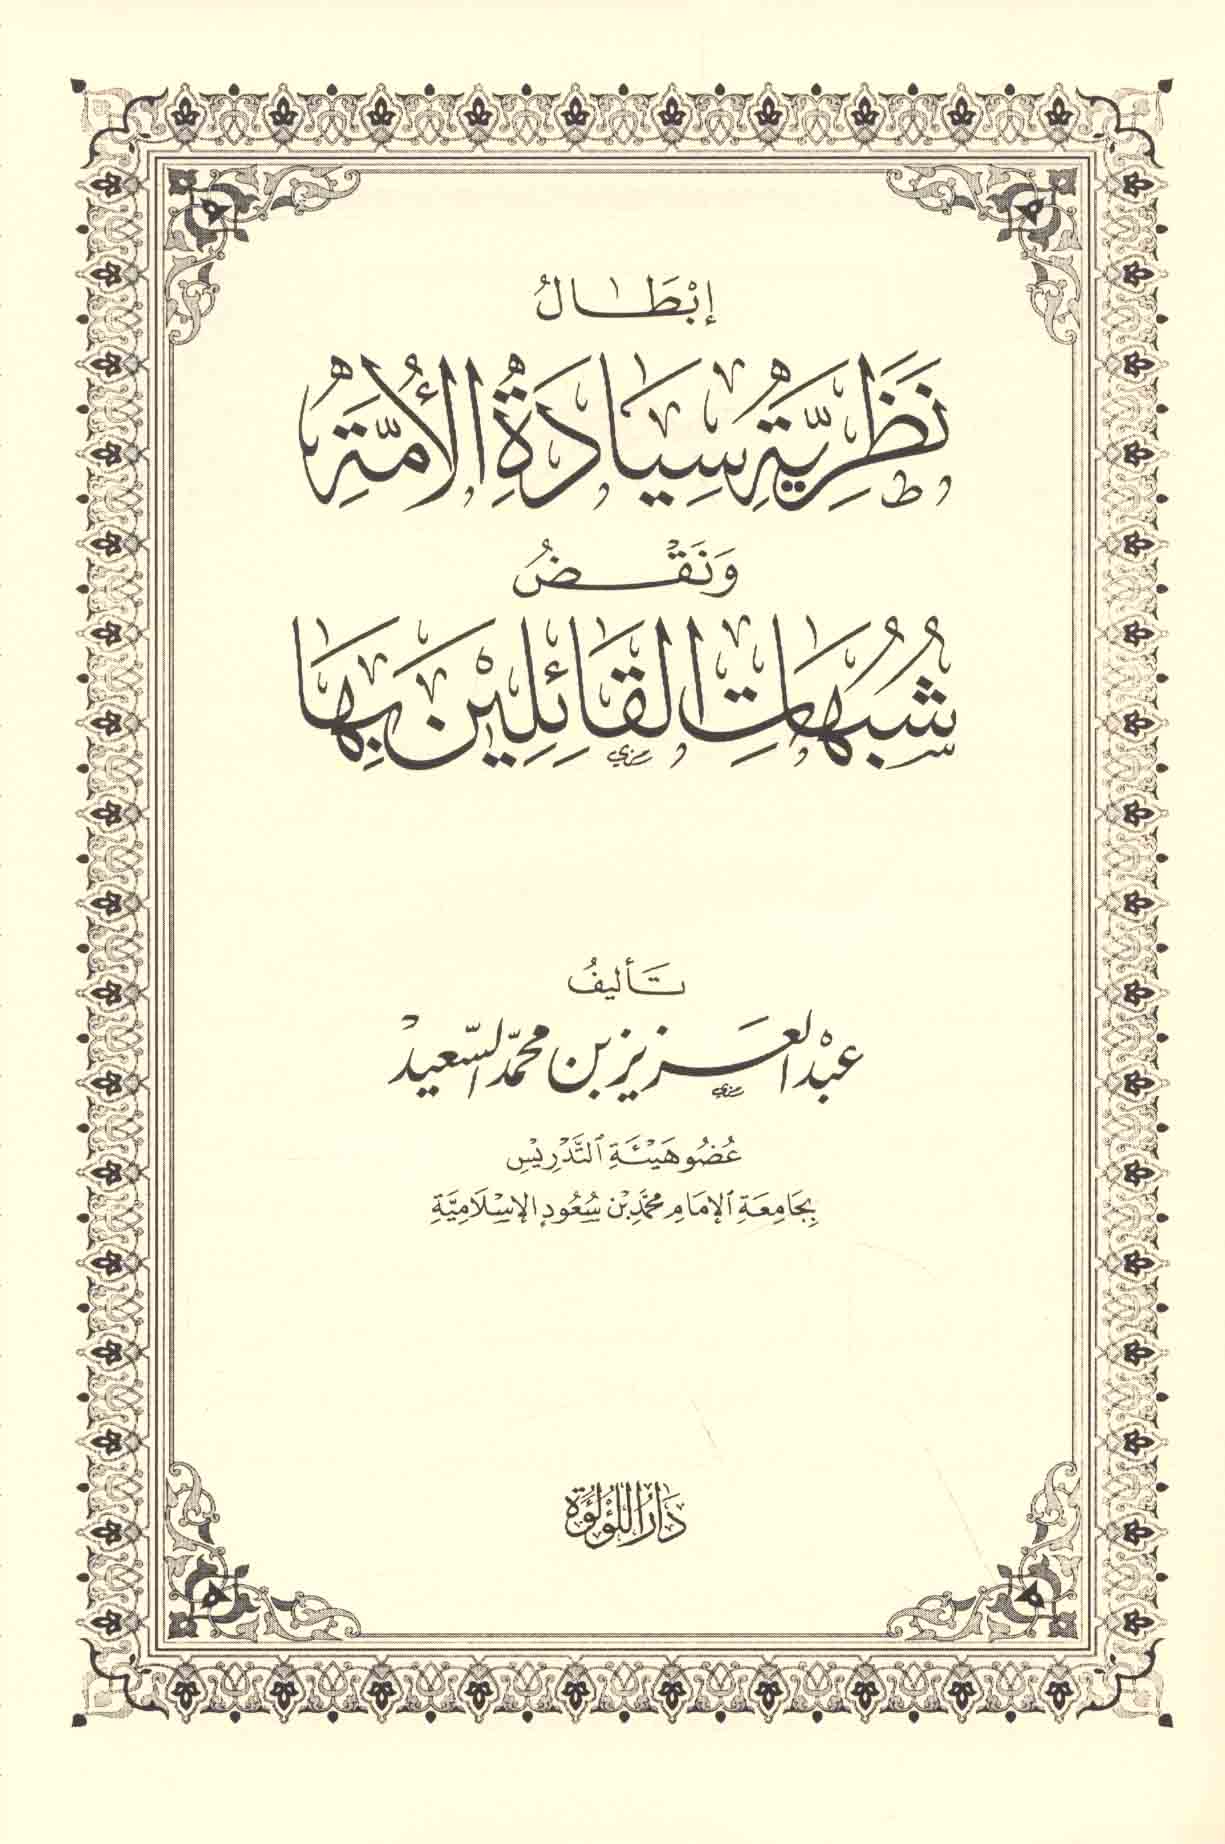 إِبْطَالُ
نَظَرِيَّةِ سِيَادَةِ الأُمَّةِ
وَنَقْضُ
شُبُهَاتِ القَائِلِينَ بِهَا
تَأليفُ
عبْد العزيز بن محمّد السّعيد
عُضُو هَيْئَةِ التَّدْرِيسِ
بِجَامِعَةِ الإِمَامِ محَمَّد بْن سُعُود الإِسْلَامِيَّةِ
دَارُ اللُّؤْلُؤَة